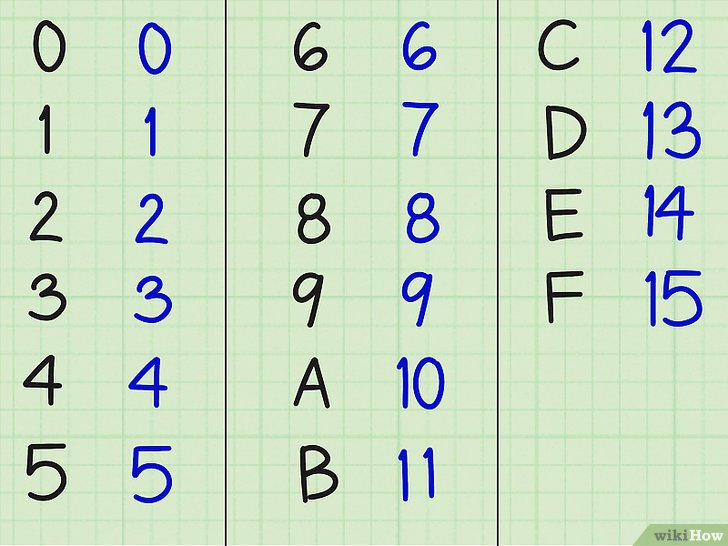 0 0
1 1
2 2
3 3
4 4
5 5
6 6
7 7
8 8
9 9
A 10
B 11
C 12
D 13
E 14
F 15
wikiHow